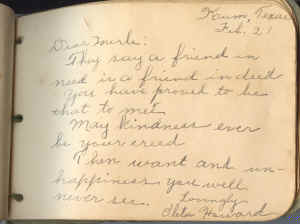 Krum, Texas
Feb. 21
Dear Merle:
They say a friend in
need is a friend indeed
You have proved to be
that to me.
May kindness ever
be your creed
Then want and un-
happiness you will
never see.
Lovingly
Oleta Howard